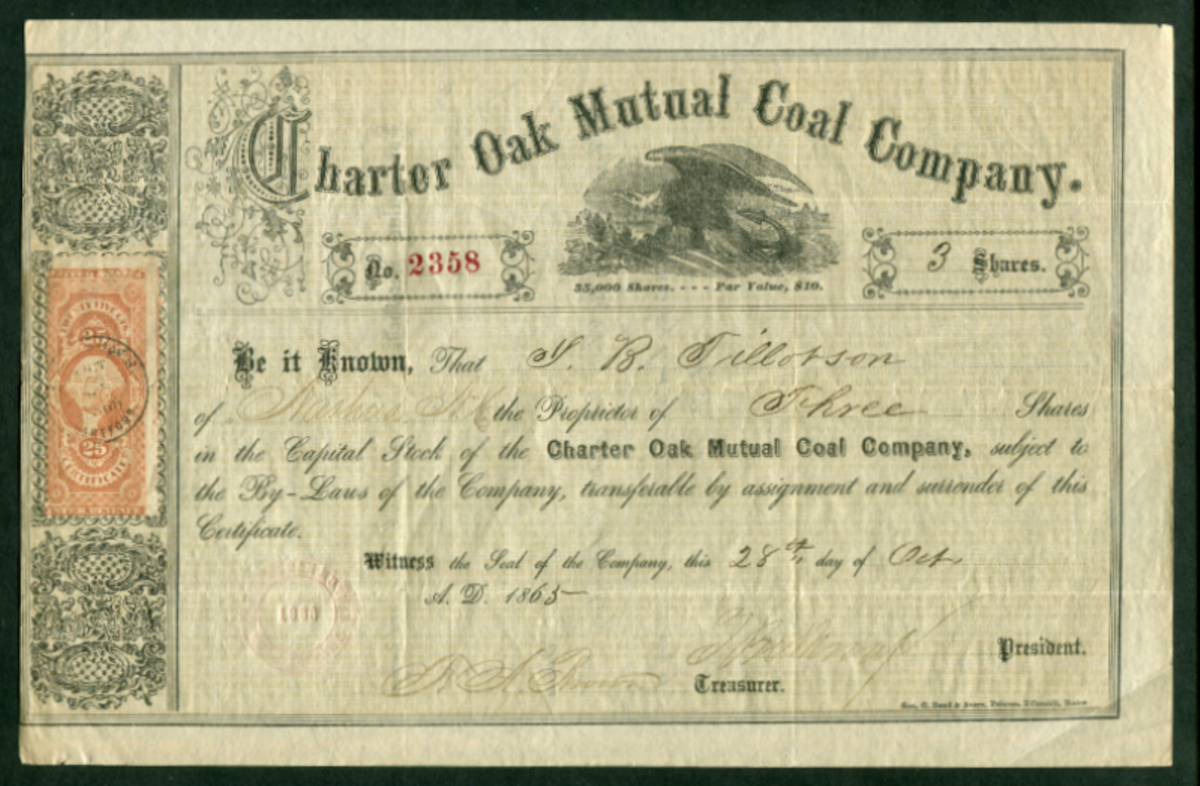 Charter Oak Mutual Coal Company.
No. 2358
3 Shares.
35,000 Shares. - - - Par Value, $10.
Be it Known, That S. B. Tillotson
of the Proprietor of Three Shares
in the Capital Stock of the Charter Oak Mutual Coal Company, subject to
the By-Laws of the Company, transferable by assignment and surrender of this
Certificate.
Witness the Seal of the Company, this 28th, day of Oct.
A. D. 1865
President.
Treasurer.
25
25
CERTIFICATE